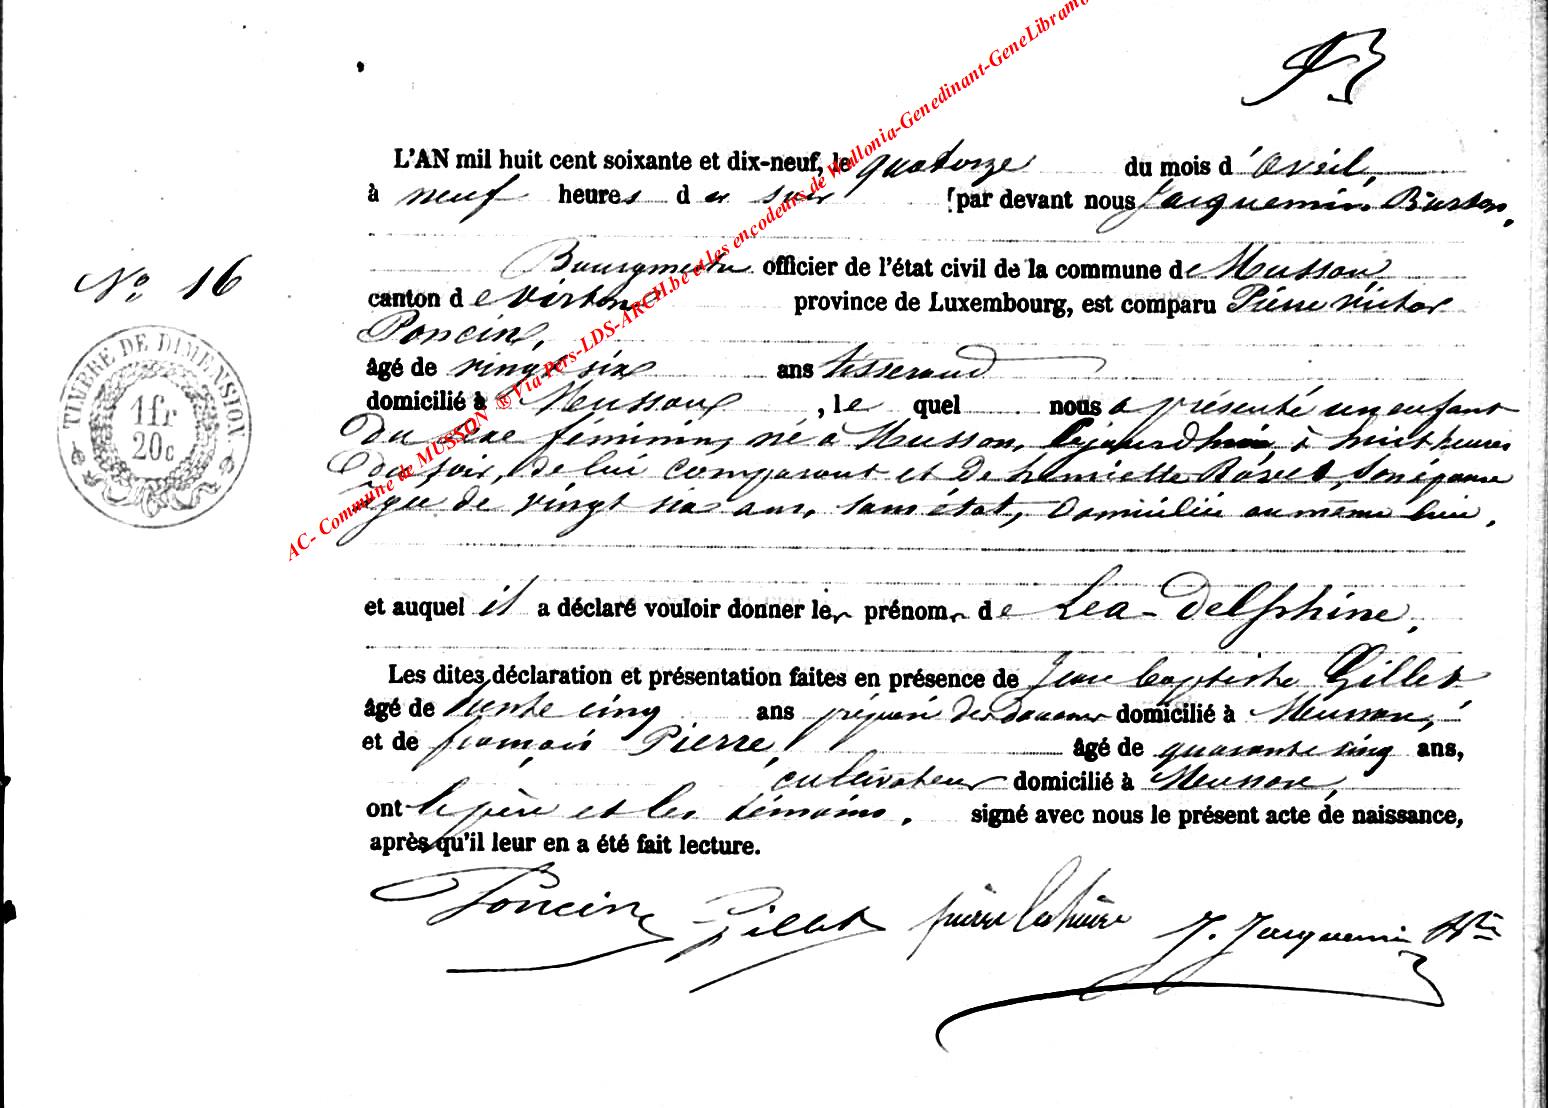 L'AN mil huit cent soixante et dix-neuf, le quatorze du mois d'avril,
à neuf heures du soir par devant nous Jacquemin
N° 16
Bourgmestre officier de l'état civil de la commune de Musson
canton de Virton province de Luxembourg, est comparu Pierre Victor
Poncin,
âgé de vingt six ans tisserand
domicilié à Musson, le quel nous a présenté un enfant
du sexe féminin, né à Musson, cejourd'hui à huit heures
du soir, de lui comparant et de henriette son épouse
âgée de vingt six ans, sans état, domiciliée au même lieu.
et auquel il a déclaré vouloir donner les prénoms de Léa-Delphine.
Les dites déclaration et présentation faites en présence de Jean baptiste Gillet
âgé de trente cinq ans préposé des douanes domicilié à Musson,
et de françois Pierre, âgé de quarante cinq ans,
cultivateur domicilié à Musson,
ont le père et les témoins, signé avec nous le présent acte de naissance,
après qu'il leur en a été fait lecture.
Poncin Gillet pierre J. Jacquemin
TIMBRE DE DIMENSION.
1 fr
20 c
AC- Commune de MUSSON ® Via Pers-LDS-ARCH.be et les encodeurs de Wallonia-Genedinant-GeneLibramo